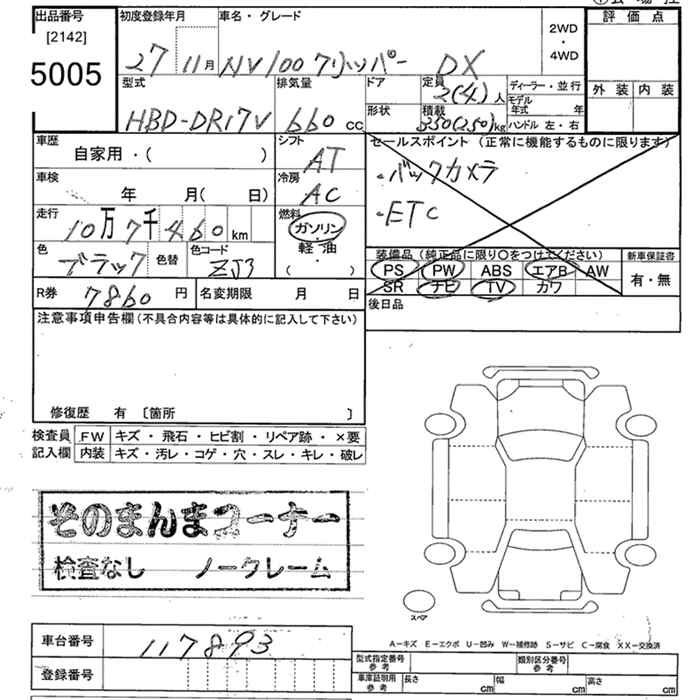 出品番号
[2142]
5005
初度登録年月
27 11月
車名・グレード
NV100クリッパー DX
2WD
・
4WD
評価点
外装 内装
型式
HBD-DR17V
排気量
660 cc
ドア
形状
定員
2(4)人
積載
350(250)kg
ディーラー・並行
モデル年式 年
ハンドル 左・右
車歴
自家用・( )
シフト
AT
セールスポイント (正常に機能するものに限ります)
・バックカメラ
・ETC
車検
年 月( 日)
冷房
AC
走行
10万7千460km
燃料
ガソリン
軽・油
・
( )
色
ブラック
色替
色コード
ZJ3
装備品 (純正品に限り○をつけてください)
PS PW ABS エアB AW
SR ナビ TV カワ
新車保証書
有・無
R券
7860円
名変期限 月 日
後日品
注意事項申告欄(不具合内容等は具体的に記入して下さい)
修復歴 有 〔箇所 〕
検査員記入欄
FW キズ・飛石・ヒビ割・リペア跡・×要
内装 キズ・汚レ・コゲ・穴・スレ・キレ・破レ
そのまんまコーナー
検査なし ノークレーム
スペア
A−キズ E−エクボ U−凹み W−補修跡 S−サビ C−腐食 XX−交換済
車台番号
117893
登録番号
型式指定番号 参考
類別区分番号 参考
車庫証明用 参考
長さ cm 幅 cm 高さ cm